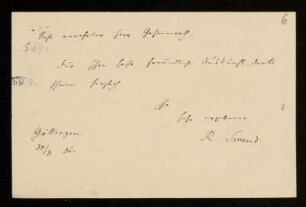 6
Sehr verehrter Herr Geheimrath,
für Ihre sehr freundliche Auskunft dankt
Ihnen herzlich
Ihr
sehr ergebener
R. Smend.
Göttingen
30/3